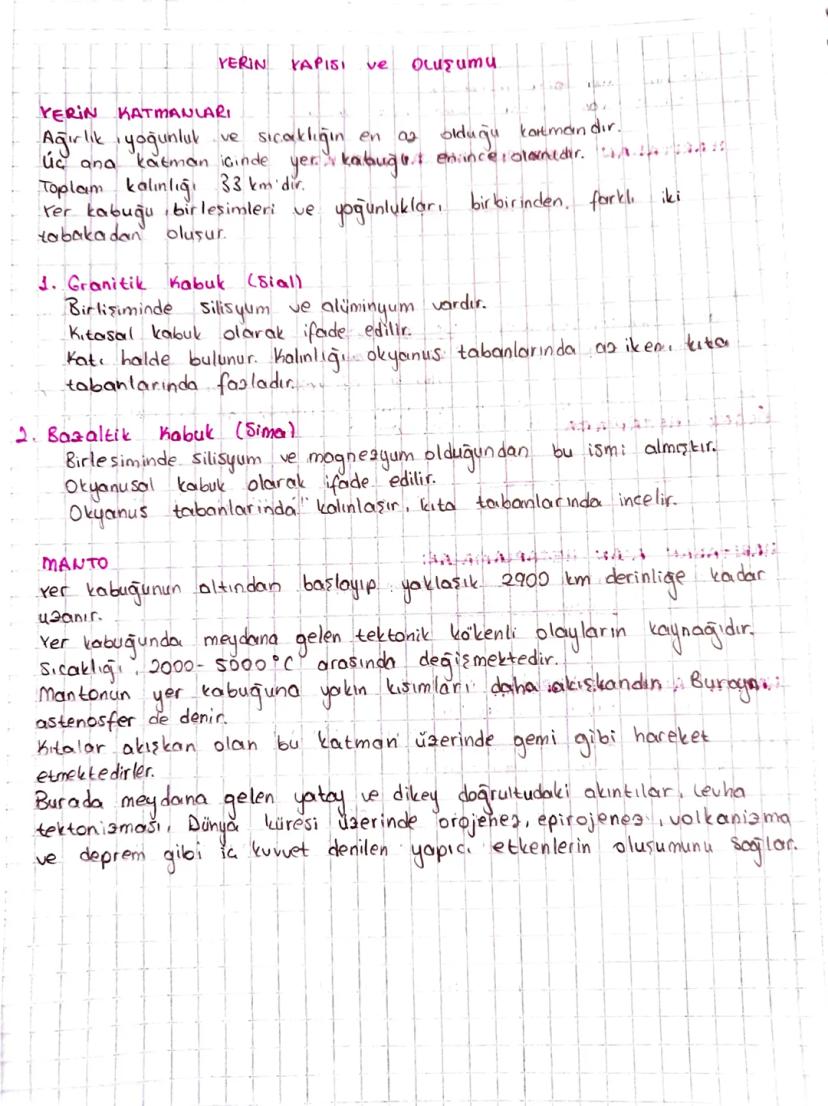 YERİN YAPISI ve OLUŞUMU
YERİN KATMANLARI
Ağırlık, yoğunluk ve sıcaklığın en az olduğu katmandır.
Üç ana katman içinde yer kabuğu en ince olanıdır.
Toplam kalınlığı 33 km'dir.
Yer kabuğu, birleşimleri ve yoğunlukları birbirinden farklı iki
tabakadan oluşur.
1. Granitik Kabuk (Sial)
Birlişiminde silisyum ve alüminyum vardır.
Kıtasal kabuk olarak ifade edilir.
Katı halde bulunur. Kalınlığı okyanus tabanlarında az iken, kıta
tabanlarında fazladır.
2. Bazaltik Kabuk (Sima)
Birleşiminde silisyum ve magnezyum olduğundan bu ismi almıştır.
Okyanusal kabuk olarak ifade edilir.
Okyanus tabanlarında kalınlaşır, kıta tabanlarında incelir.
MANTO
Yer kabuğunun altından başlayıp yaklaşık 2900 km derinliğe kadar
uzanır.
Yer kabuğunda meydana gelen tektonik kökenli olayların kaynağıdır.
Sıcaklığı, 2000-5000°C arasında değişmektedir.
Mantonun yer kabuğuna yakın kısımları daha akışkandır. Buraya
astenosfer de denir.
Kıtalar akışkan olan bu katman üzerinde gemi gibi hareket
etmektedirler.
Burada meydana gelen yatay ve dikey doğrultudaki akıntılar, levha
tektonizması, Dünya küresi üzerinde orojenez, epirojenez, volkanizma
ve deprem gibi iç kuvvet denilen yapıcı etkenlerin oluşumunu sağlar.